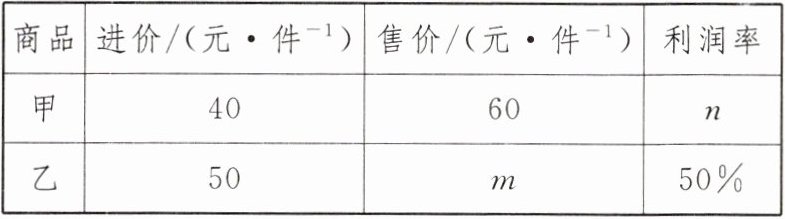 商品 进价/(元·件⁻¹) 售价/(元·件⁻¹) 利润率
甲 40 60 n
乙 50 m 50%